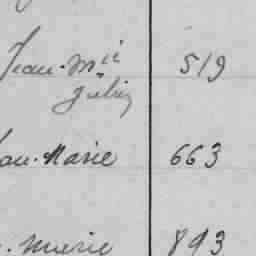 Jean-Mie 519
Julien
Jean-Marie 663
Marie 893